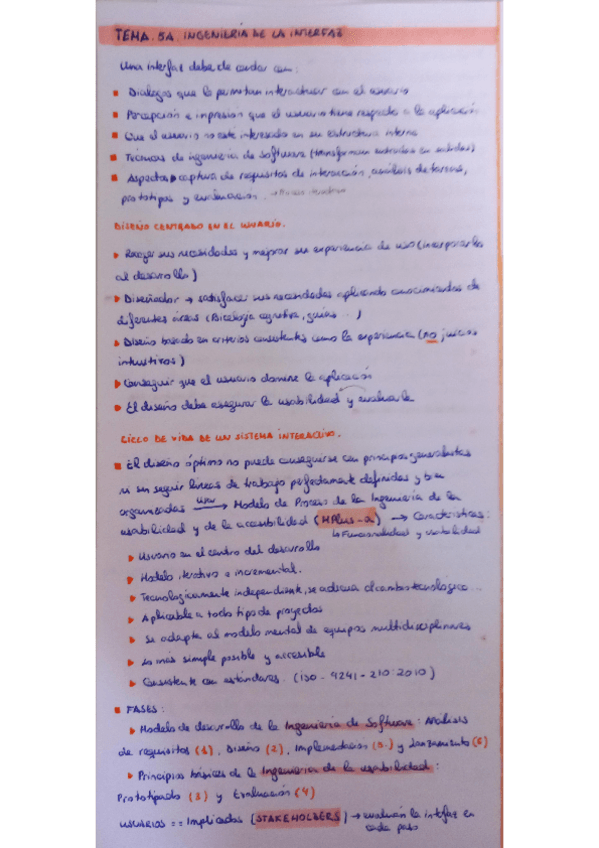 TEMA. 5A. INGENIERÍA DE LA INTERFAZ
Una interfaz debe de contar con:
Dialogos que le permitan interactuar con el usuario
Percepción e impresion que el usuario tiene respecto a la aplicación
Que el usuario no esté interesado en su estructura interna
Técnicas de ingeniería de Software (transforman entradas en salidas)
Aspectos captura de requisitos de interacción, análisis de tareas,
prototipos y evaluación. → Proceso iterativo
DISEÑO CENTRADO EN EL USUARIO.
Recoger sus necesidades y mejorar su experiencia de uso (incorporarla
al desarrollo)
Diseñador → satisfacer sus necesidades aplicando conocimientos de
diferentes áreas (Psicología cognitiva, guías ...)
Diseño basado en criterios consistentes como la experiencia (no juicios
intuitivos)
Conseguir que el usuario domine la aplicación
El diseño debe asegurar la usabilidad y evaluarla
CICLO DE VIDA DE UN SISTEMA INTERACTIVO.
El diseño óptimo no puede conseguirse con principios generalistas
ni sin seguir líneas de trabajo perfectamente definidas y bien
organizadas usar → Modelo de Proceso de la Ingeniería de la
usabilidad y de la accesibilidad (MPIu+a) → Características:
↳ Funcionalidad y usabilidad
Usuario en el centro del desarrollo
Modelo iterativo e incremental.
Tecnologicamente independiente, se adecua al cambio tecnológico ...
Aplicable a todo tipo de proyectos
Se adapta al modelo mental de equipos multidisciplinares
Lo más simple posible y accesible
Consistente con estándares. (ISO - 9241 - 210:2010)
FASES:
Modelo de desarrollo de la Ingeniería de Software: Análisis
de requisitos (1), Diseño (2), Implementación (5) y Lanzamiento (6)
Principios básicos de la Ingeniería de la usabilidad:
Prototipado (3) y Evaluación (4)
USUARIOS == Implicados (STAKEHOLDERS) → evalúan la interfaz en
cada paso